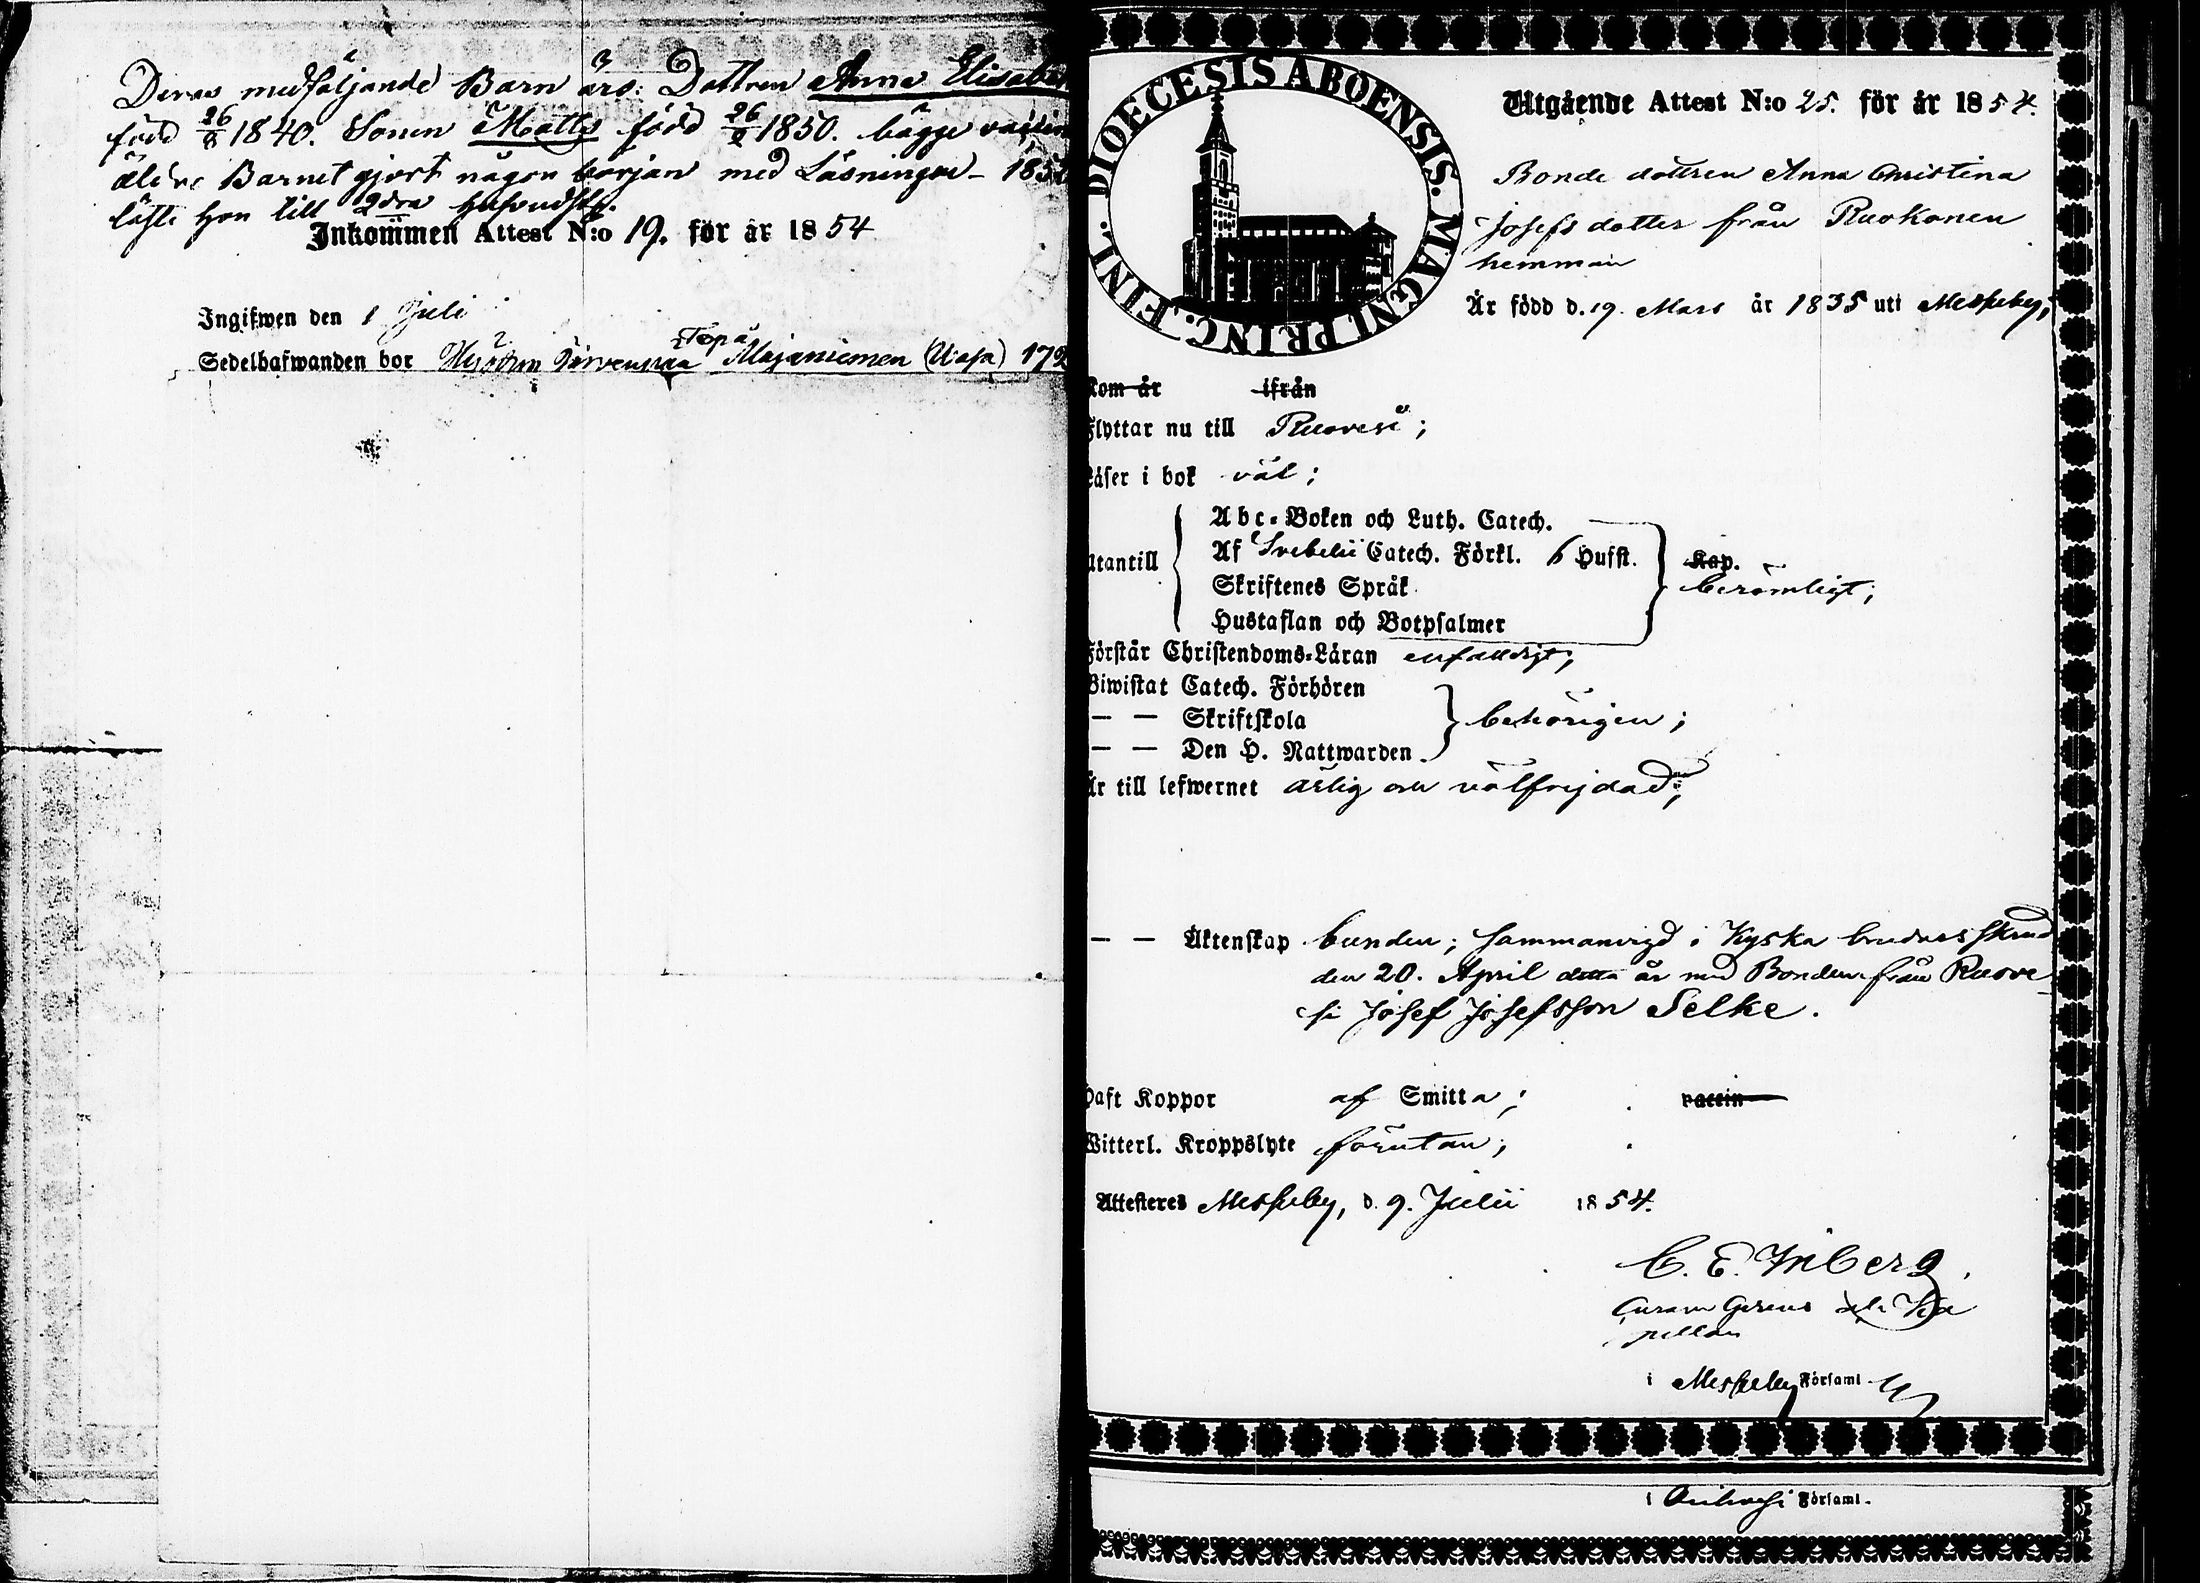 Deras medföljande Barn äro: Dottren Anna Elisabet
född 26/8 1840. Sonen Matts född 26/2 1850. bägge
äldre Barnet gjort någon början med Läsningen
läste hon till 2dra
Inkommen Attest N:o 19. för år 1854
Ingifwen den 1 Juli
Sedelhafwanden bor
DIOECESIS ABOENSIS. MAGNI. PRINC. FINL.
Utgående Attest N:o 25. för år 1854.
Bonde dottren Anna Christina
Josefs dotter från Ruokonen
hemman
Är född d. 19. Mars år 1835 uti Messuby;
kom år ifrån
Flyttar nu till Ruovesi;
Läser i bok väl;
Utantill
Abc-Boken och Luth. Catech.
Af Svebelii Catech. Förkl. 6 Hufst. Kap.
Skriftenes Språk berömligt;
Hustaflan och Botpsalmer
Förstår Christendoms-Läran enfaldigt;
Biwistat Catech. Förhören
— — Skriftskola behörigen;
— — Den H. Nattwarden
Är till lefwernet ärlig och välfrejdad;
— — Äktenskap bunden; sammanvigd i Kyska brudars skrud
den 20. April detta år med Bonden från Ruove-
si Josef Josefsson Selke.
Haft Koppor af Smitta; vaccin
Witterl. Kroppslyte förutan;
Attesteres Messuby, d. 9. Julii 1854.
C. E. Inberg.
Curam Gerens
pellan
i Messuby Församl.
i Orihvesi Församl.